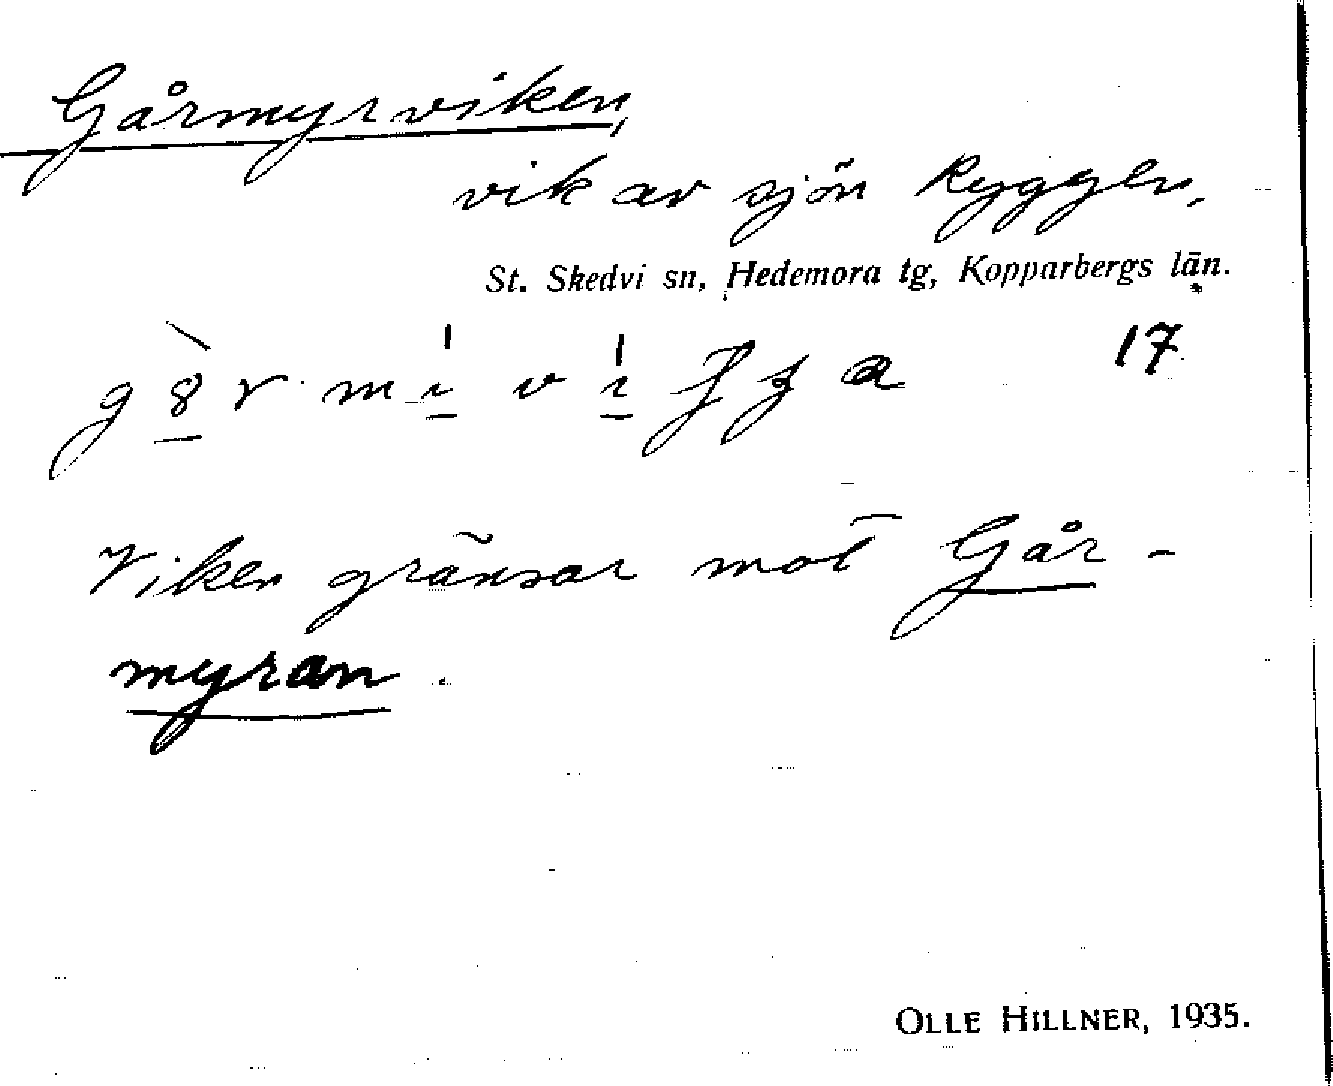 Gårmyrviken,
vik av sjön Ryggen.
St. Skedvi sn, Hedemora tg, Kopparbergs län.
17
Viken gränsar mot Går-
myran.
OLLE HILLNER, 1935.